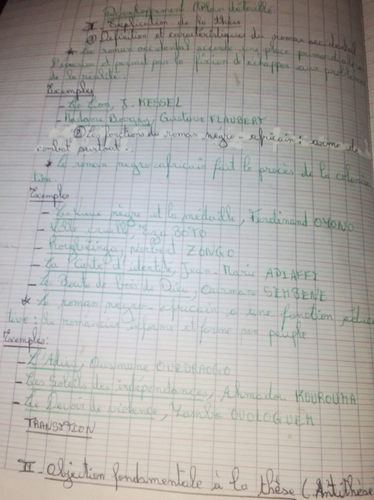 Développement
I Explication de la thèse
① Définition et caractéristiques du roman occidental
* Le roman occidental accorde une place primordiale à
l'évasion et permet par la fiction d'échapper aux problèmes
de la réalité
Exemples
- Le Lion, J. KESSEL
- Madame Bovary, Gustave FLAUBERT
② La fonction du roman négro-africain : arme de
combat
* Le roman négro-africain fait le procès de la colonisa
tion
Exemples
- Le vieux nègre et la médaille, Ferdinand OYONO
- Ville cruelle, Eza BOTO
- ZONGO
- La Carte d'identité, Jean-Marie ADIAFFI
- Le Bouts de bois de Dieu, Ousmane SEMBENE
* Le roman négro-africain a une fonction éduca
tive : Le romancier informe et forme son peuple
Exemples :
- Ousmane OUEDRAOGO
- Les Soleils des indépendances, Ahmadou KOUROUMA
- Le Devoir de violence, Yambo OUOLOGUEM
TRANSITION
II. Objection fondamentale à la thèse (Antithèse